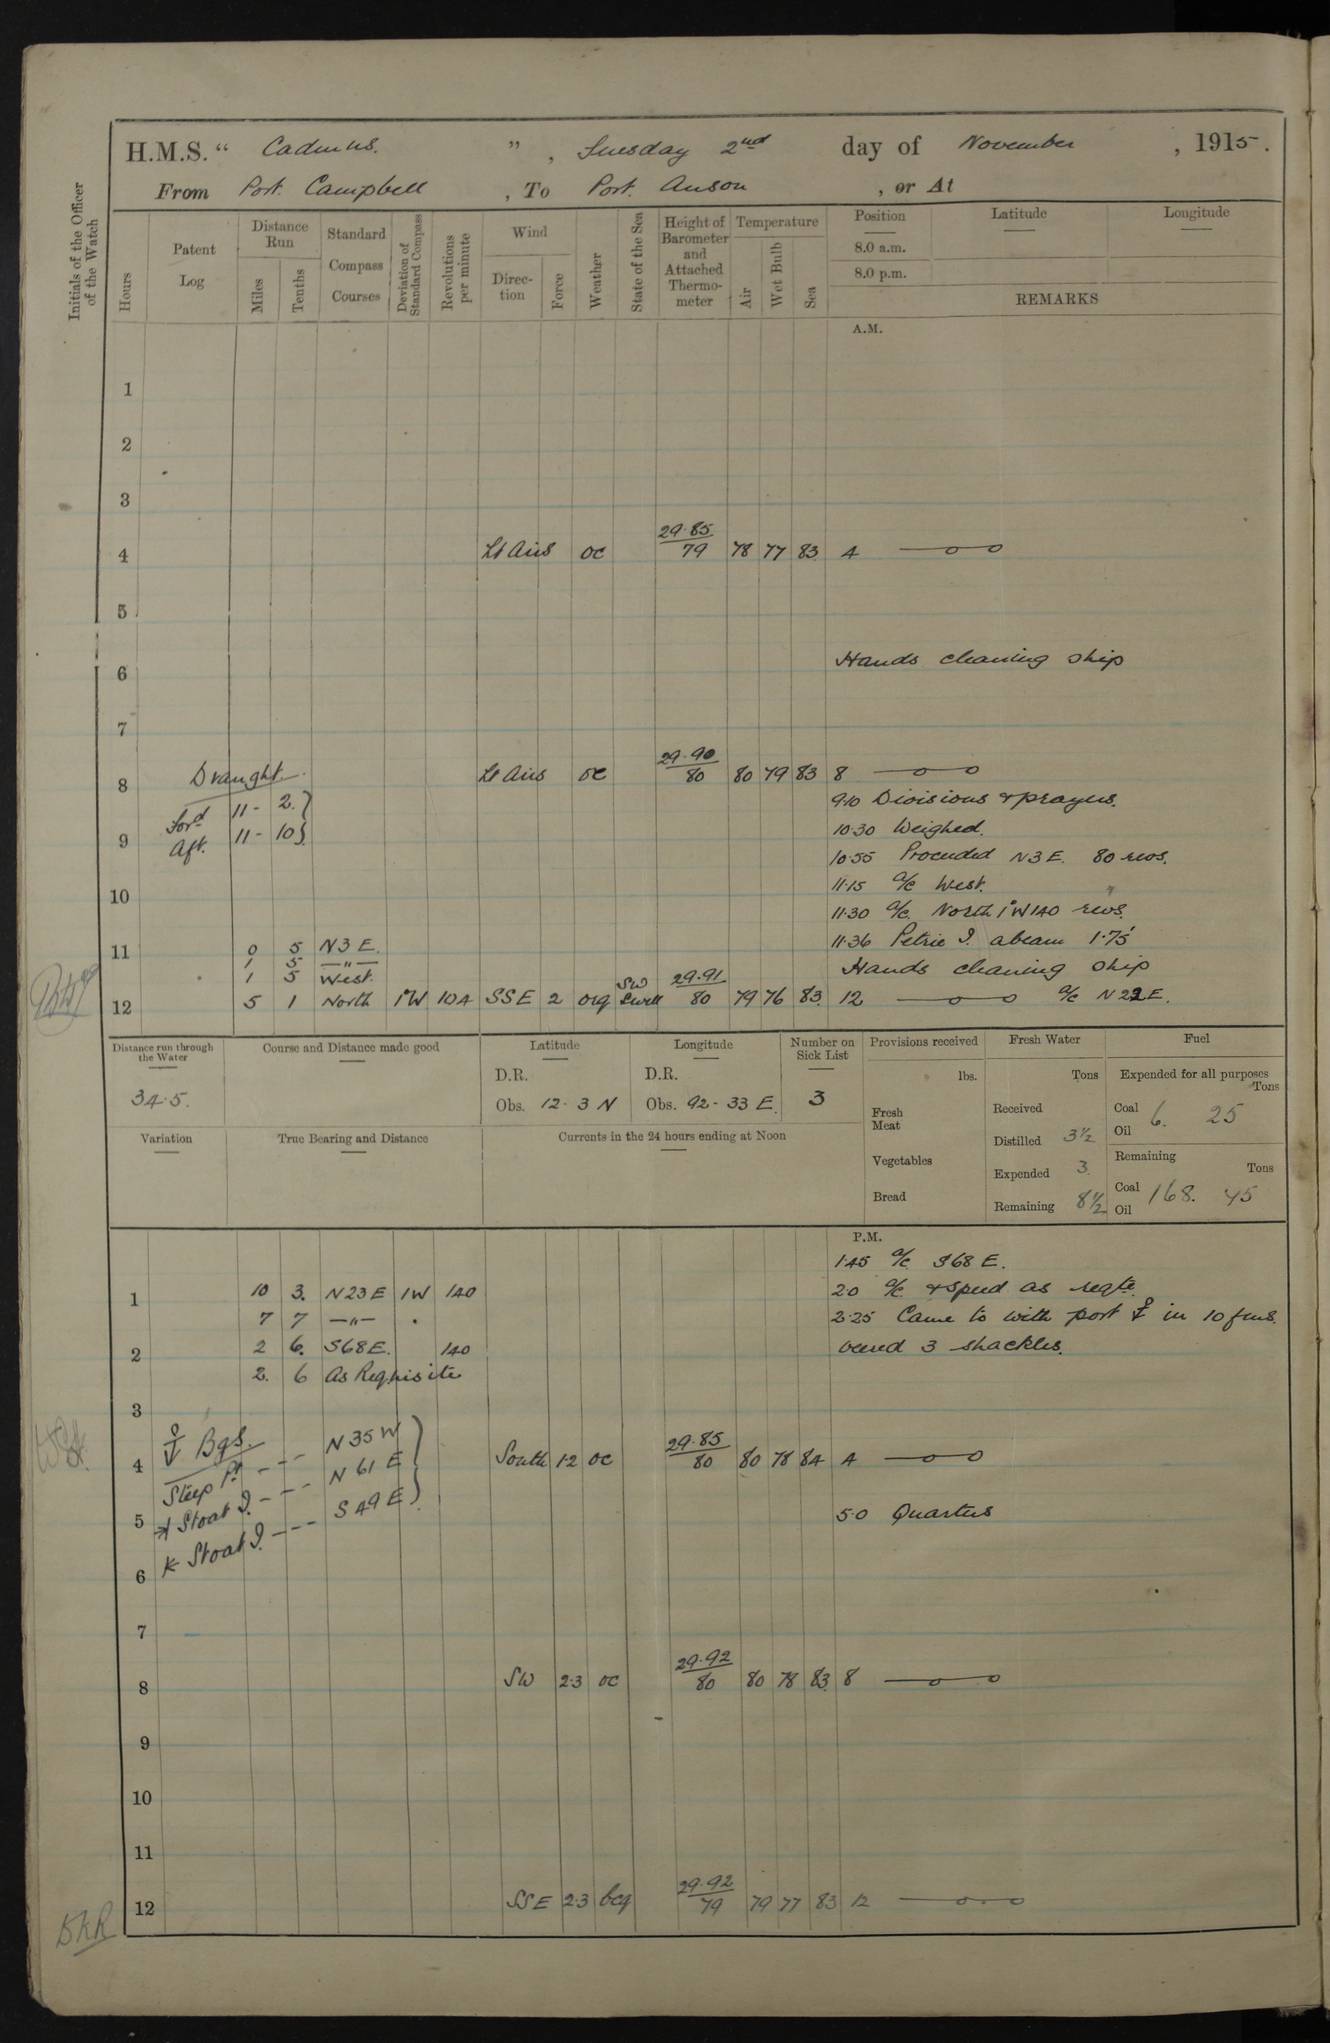 H.M.S. “ Cadmus. ” , Tuesday 2nd day of November , 1915.
From Port. Campbell , To Port. Anson , or At
Initials of the Officer of the Watch
Hours
Patent Log
Distance Run
Miles
Tenths
Standard Compass Courses
Deviation of Standard Compass
Revolutions per minute
Wind
Direction
Force
Weather
State of the Sea
Height of Barometer and Attached Thermometer
Temperature
Air
Wet Bulb
Sea
Position Latitude Longitude
8.0 a.m.
8.0 p.m.
REMARKS
A.M.
1
2
3
4 Lt Airs oc 29.85/79 78 77 83 4
5
6 Hands cleaning ship
7
8 Draught. Lt Airs oc 29.90/80 80 79 83 8
Ford 11 - 2. }
9.10 Divisions & prayers.
9 Aft. 11 - 10 }
10.30 Weighed.
10.55 Proceeded N3E. 80 revs.
10 11.15 a/c West. "
11.30 a/c. North 1°W 140 revs.
11 0 5 N3E. 11.36 Petrie I. abeam 1.75'
1 5 —"—
1 5 West. Hands cleaning ship
12 5 1 North 1°W 104 SSE 2 org SW Swell 29.91/80 79 76 83. 12 a/c N22E.
Distance run through the Water
34.5.
Course and Distance made good
Latitude
D.R.
Obs. 12- 3 N
Longitude
D.R.
Obs. 92- 33 E.
Number on Sick List
3
Provisions received
lbs.
Fresh Meat
Vegetables
Bread
Fresh Water
Tons
Received
Distilled 3½
Expended 3.
Remaining 8½
Fuel
Expended for all purposes
Tons
Coal 6. 25
Oil
Remaining
Tons
Coal 168. 45
Oil
Variation
True Bearing and Distance
Currents in the 24 hours ending at Noon
P.M.
1.45 a/c. S68E.
1 10 3. N23E 1W 140 2.0 a/c. & speed as reqte.
7 7 —"— 2.25 Came to with port ⚓ in 10 fms.
2 2 6. S68E. 140 veered 3 shackles.
2. 6 As Requisite
3
⚓ Bgs.
4 Steep Pt. --- N35W } South 1.2 oc 29.85/80 80 78 84 4
5 Stoat I. --- N 61 E 5.0 Quarters
6 Stoat I. --- S 49 E }
7
8 SW 2.3 oc 29.92/80 80 78 83 8
9
10
11
12 SSE 2.3 bcq 29.92/79 79 77 83 12